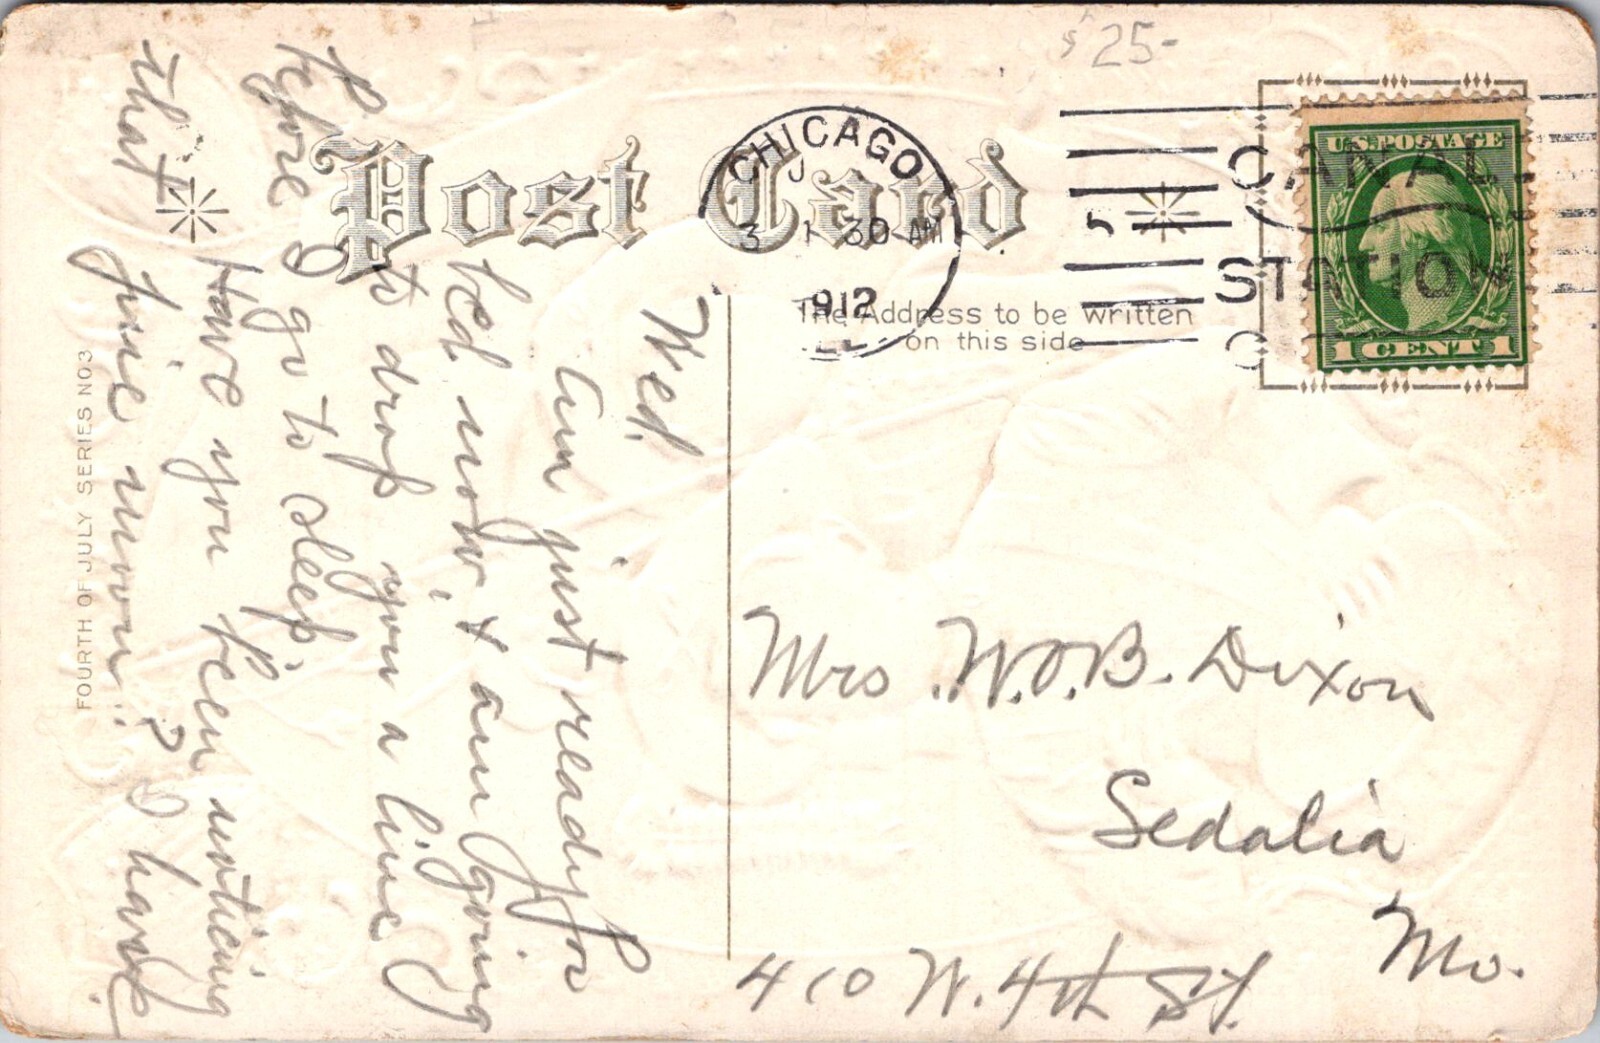 $25-
Post Card
CHICAGO
J
3 1 30 AM
1912
CANAL
STATION
U.S. POSTAGE
1 CENT 1
The Address to be written
on this side
Wed.
Am just ready for
bed now, & am going
to drop you a line
before I go to sleep.
Have you been noticing
that fine moon? I have.
Mrs W.O.B. Dixon
Sedalia
Mo.
410 W. 4th St.
FOURTH OF JULY SERIES NO3